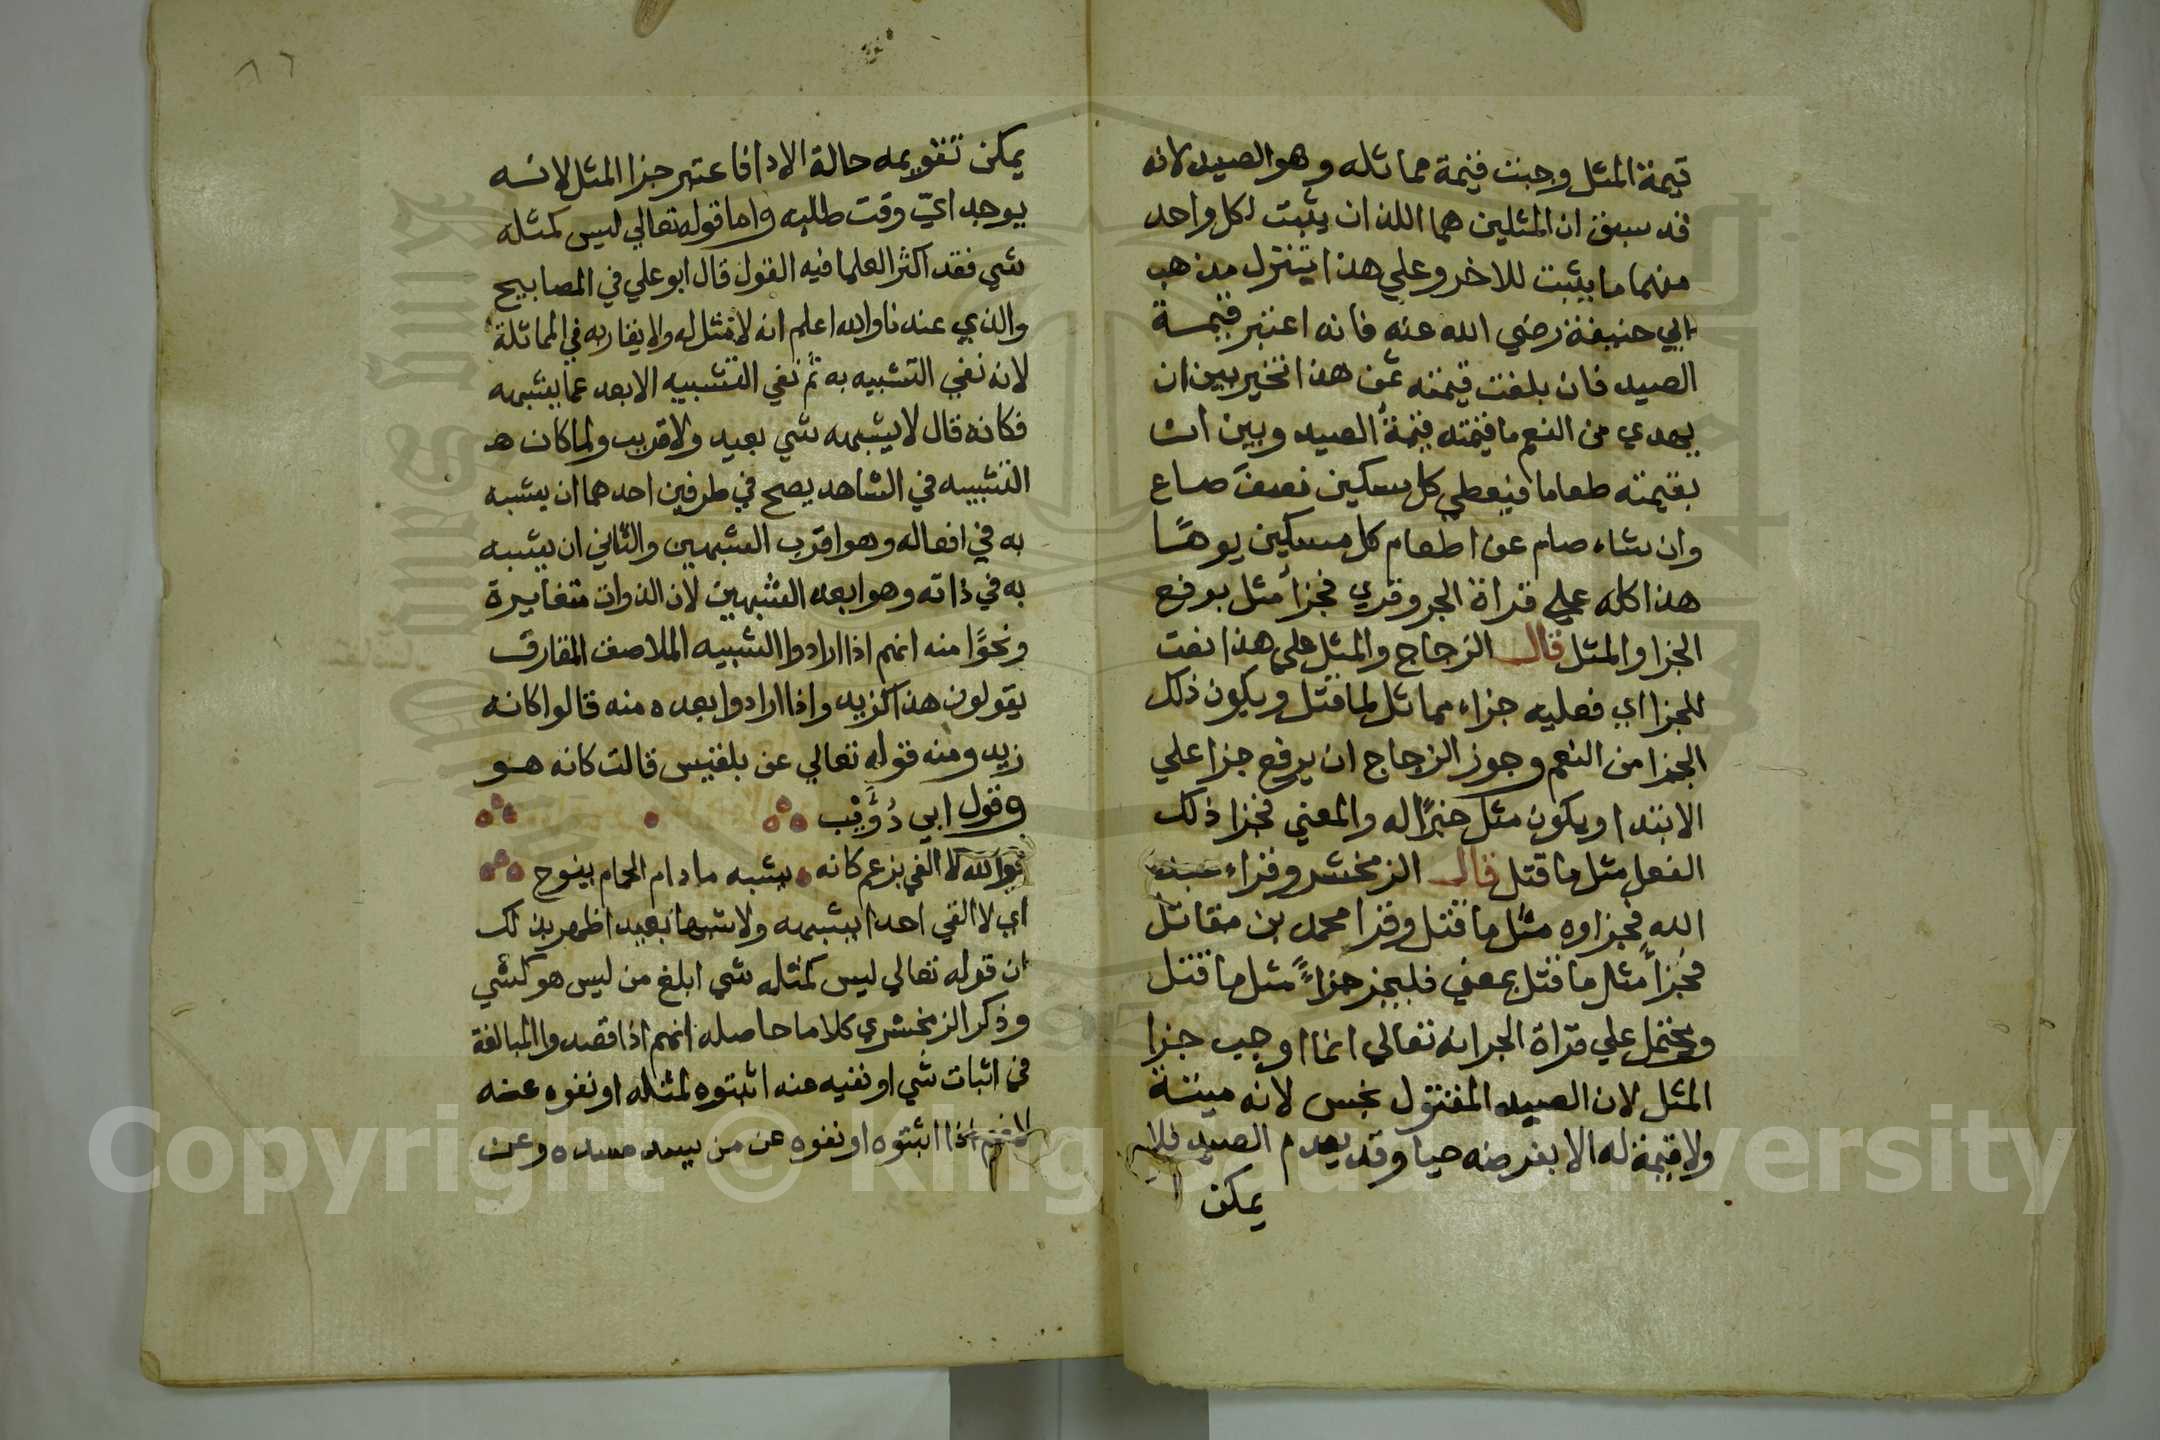 قيمة المثل وجبت قيمة مماثله وهو الصيد لانه
قد سبق ان المثلين هما اللذان يثبت لكل واحد
منهما ما يثبت للاخر وعلي هذا يتنزل مذهب
ابي حنيفة رضي الله عنه فانه اعتبر قيمة
الصيد فان بلغت قيمته ثمن هذا تخير بين ان
يهدي من النعم ما قيمته قيمة الصيد وبين ان
بقيمته طعاما فيعطي كل مسكين نصف صاع
وان شاء صام عن اطعام كل مسكين يومًا
هذا كله علي قراة الجر وقري فجزأ مثل برفع
الجزا والمثل قال الزجاج والمثل علي هذا نعت
للجزا اي فعليه جزاء مماثل لما قتل ويكون ذلك
الجزا من النعم وجوز الزجاج ان يرفع جزا علي
الابتدا ويكون مثل خبرًا له والمعني فجزا ذلك
الفعل مثل ما قتل قال الزمخشر وقراء عبد
الله فجزاوه مثل ما قتل وقرا محمد بن مقاتل
فجزأ مثل ما قتل بمعني فليجز جزاءً مثل ما قتل
ويحتمل علي قراة الجر انه تعالي انما اوجب جزا
المثل لان الصيد المقتول نجس لانه ميتة
ولا قيمة له الا بفرضه حيا وقد يعدم الصيد فلا
يمكن
٨٦
يمكن تقويمه حالة الادا فاعتبر جزا المثل لانه
يوجد ايّ وقت طلبه واما قوله تعالي ليس كمثله
شي فقد اكثر العلما فيه القول قال ابو علي في المصابيح
والذي عندنا والله اعلم انه لا مثل له ولا يقاربه في المماثلة
لانه نفي التشبيه به ثم نفي التشبيه الابعد عما يشبهه
فكانه قال لا يشبهه شي بعيد ولا قريب ولما كان ه
التشبيه في الشاهد يصح في طرفين احدهما ان يشبه
به في افعاله وهو اقرب الشبهين والثاني ان يشبه
به في ذاته وهو ابعد الشبهين لان الذوات متغايرة
ونحوًا منه انهم اذا ارادوا التشبيه الملاصق المقارب
يقولون هذا كزيد واذا ارادوا بعده منه قالوا كانه
زيد ومنه قوله تعالي عن بلقيس قالت كانه هو
وقول ابي ذُؤَيْب
فوالله لا القي بزعم كانه يشبه ما دام الحمام ينوح
اي لا القي احدا يشبهه ولا شبها بعيد اظهر بذلك
ان قوله تعالي ليس كمثله شي ابلغ من ليس هو كشي
وذكر الزمخشري كلاما حاصله انهم اذا قصدوا المبالغة
في اثبات شي او نفيه عنه اثبتوه لمثله او نفوه عنه
لانهم اذا اثبتوه او نفوه عن من يسد مسده وعن
Copyright © King Saud University